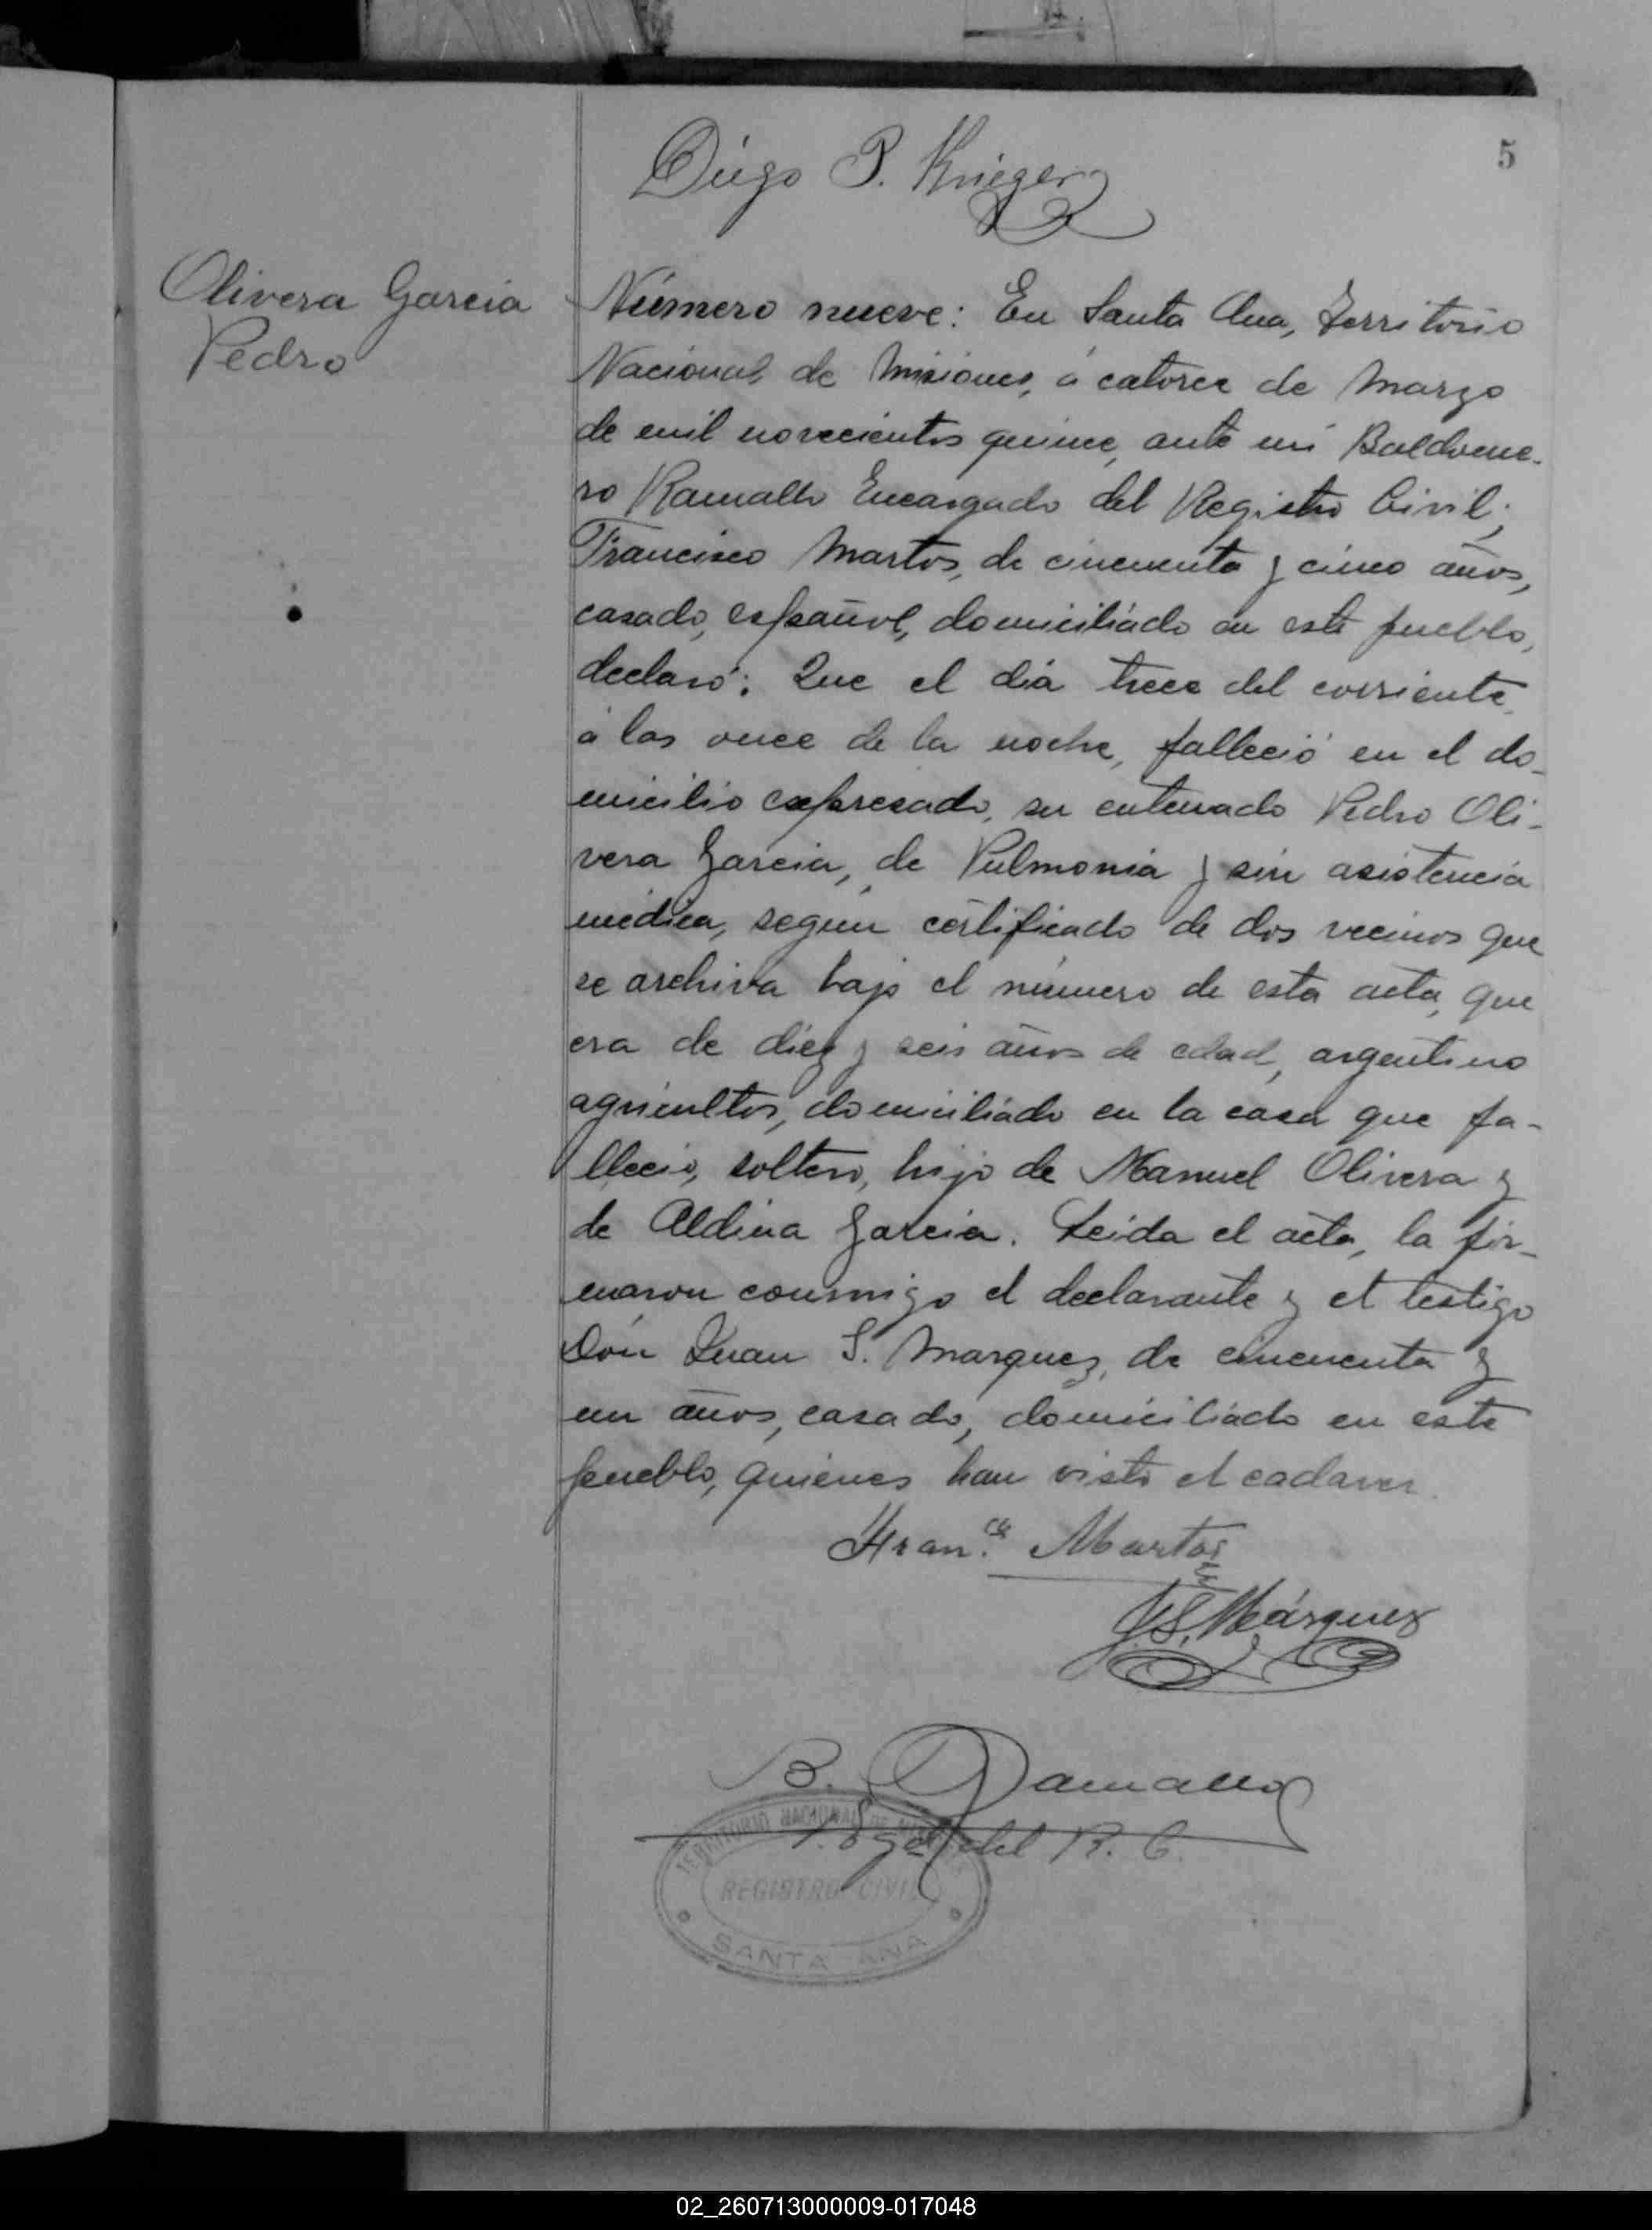 5
Diego P. Krieger
Olivera Garcia
Pedro
Número nueve: En Santa Ana, Territorio
Nacional de Misiones, á catorce de Marzo
de mil novecientos quince, ante mi Baldome-
ro Ramallo Encargado del Registro Civil;
Francisco Martos, de cincuenta y cinco años,
casado, español, domiciliado en este pueblo,
declaró: Que el dia trece del corriente
á las once de la noche, falleció en el do-
micilio expresado, su entenado Pedro Oli-
vera Garcia, de Pulmonia y sin asistencia
médica, segun certificado de dos vecinos que
se archiva bajo el número de esta acta, que
era de diez y seis años de edad, argentino
agricultor, domiciliado en la casa que fa-
lleció, soltero, hijo de Manuel Olivera y
de Aldina Garcia. Leida el acta, la fir-
maron conmigo el declarante y el testigo
Don Juan S. Marquez, de cincuenta y
un años, casado, domiciliado en este
pueblo, quienes han visto el cadaver.
Fran.co Martos
J. S. Márquez
B. Ramallo
del R. C.
TERRITORIO NACIONAL DE MISIONES
REGISTRO CIVIL
SANTA ANA
02_260713000009-017048